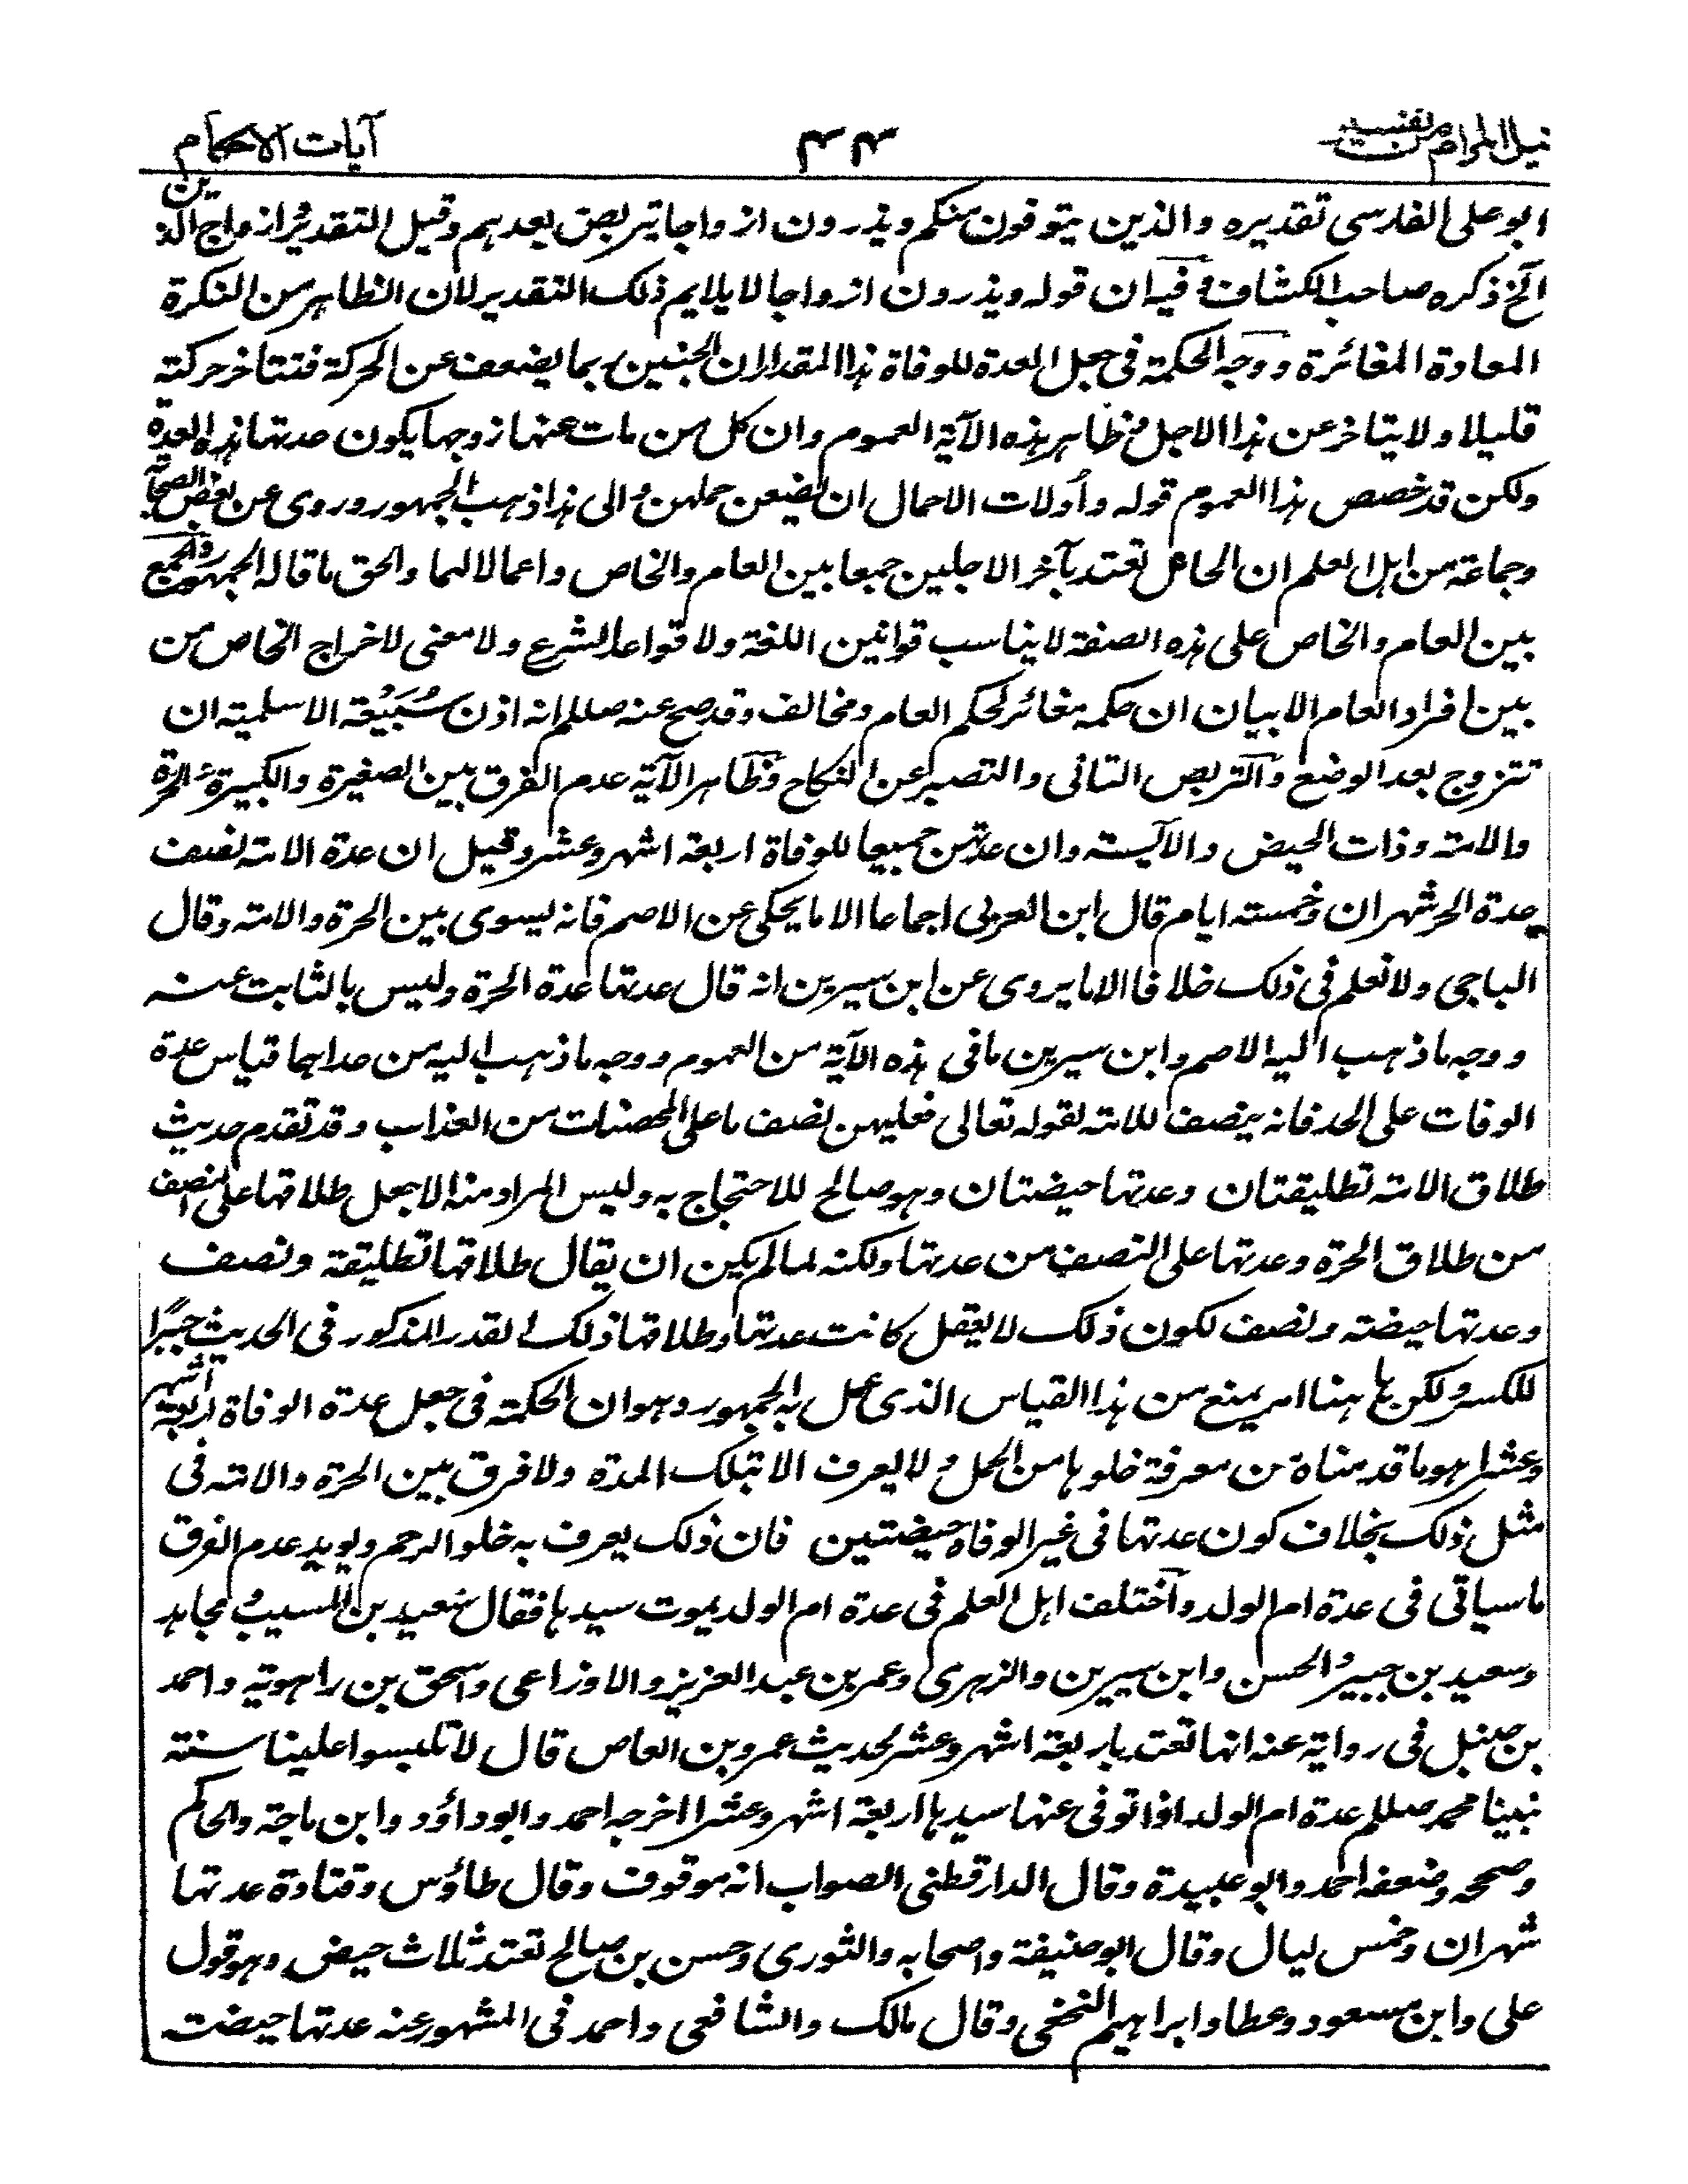 نيل المرام من تفسير ۴۴ آيات الاحكام
ابو على الفارسى تقديره والذين يتوفون منكم ويذرون ازواجا يتربصن بعدهم وقيل التقدير وازواج الذين
الخ ذكره صاحب الكشاف وفيه ان قوله ويذرون ازواجا لا يلايم ذلك التقدير لان الظاهر من النكرة
المعادة المغائرة ووجه الحكمة فى جعل العدة للوفاة هذا المقدار ان الجنين ربما يضعف عن الحركة فتتاخر حركته
قليلا ولا يتاخر عن هذا الاجل وظاهر هذه الآية العموم وان كل من مات عنها زوجها يكون عدتها هذه العدة
ولكن قد خصص هذا العموم قوله وأولات الاحمال ان يضعن حملهن والى هذا ذهب الجمهور وروى عن بعض الصحابة
وجماعة من اهل العلم ان الحامل تعتد بآخر الاجلين جمعا بين العام والخاص واعمالا لهما والحق ما قاله الجمهور والجمع
بين العام والخاص على هذه الصفة لا يناسب قوانين اللغة ولا قواعد الشرع ولا معنى لاخراج الخاص من
بين افراد العام الا بيان ان حكمه مغائر لحكم العام ومخالف وقد صح عنه صللم انه اذن سُبَيْعة الاسلمية ان
تتزوج بعد الوضع والتربص التانى والتصبر عن النكاح وظاهر الآية عدم الفرق بين الصغيرة والكبيرة والحرة
والامة وذات الحيض والآيسة وان عدتهن جميعا للوفاة اربعة اشهر وعشر وقيل ان عدة الامة نصف
عدة الحر شهران وخمسة ايام قال ابن العربى اجماعا الا ما يحكى عن الاصم فانه يسوى بين الحرة والامة وقال
الباجى ولا نعلم فى ذلك خلافا الا ما يروى عن ابن سيرين انه قال عدتها عدة الحرة وليس بالثابت عنه
ووجه ما ذهب اليه الاصم وابن سيرين ما فى هذه الآية من العموم ووجه ما ذهب اليه من عداهما قياس عدة
الوفات على الحد فانه ينصف للامة لقوله تعالى فعليهن نصف ما على المحصنات من العذاب وقد تقدم حديث
طلاق الامة تطليقتان وعدتها حيضتان وهو صالح للاحتجاج به وليس المراد منه الا جعل طلاقها على النصف
من طلاق الحرة وعدتها على النصف من عدتها ولكنه لما لم يكن ان يقال طلاقها تطليقة ونصف
وعدتها حيضة ونصف لكون ذلك لا يعقل كانت عدتها وطلاقها ذلك القدر المذكور فى الحديث جبرًا
للكسر ولكن ها هنا امر يمنع من هذا القياس الذى عمل به الجمهور وهو ان الحكمة فى جعل عدة الوفاة اربعة اشهر
وعشرا هو ما قدمناه من معرفة خلوها من الحمل ولا يعرف الا بتلك المدة ولا فرق بين الحرة والامة فى
مثل ذلك بخلاف كون عدتها فى غير الوفاة حيضتين فان ذلك يعرف به خلو الرحم ويويد عدم الفرق
ما سياتى فى عدة ام الولد واختلف اهل العلم فى عدة ام الولد يموت سيدها فقال سعيد بن المسيب ومجاهد
وسعيد بن جبير والحسن وابن سيرين والزهرى وعمر بن عبد العزيز والاوزاعى واسحق بن راهوية واحمد
بن حنبل فى رواية عنه انها تعتد باربعة اشهر وعشر لحديث عمرو بن العاص قال لا تلبسوا علينا سنة
نبينا محمد صللم عدة ام الولد اذا توفى عنها سيدها اربعة اشهر وعشرا اخرجه احمد وابو داؤد وابن ماجة والحاكم
وصححه وضعفه احمد وابو عبيدة وقال الدارقطنى الصواب انه موقوف وقال طاؤس وقتادة عدتها
شهران وخمس ليال وقال ابو حنيفة واصحابه والثورى وحسن بن صالح تعتد ثلاث حيض وهو قول
على وابن مسعود وعطا وابراهيم النخعى وقال مالك والشافعى واحمد فى المشهور عنه عدتها حيضة